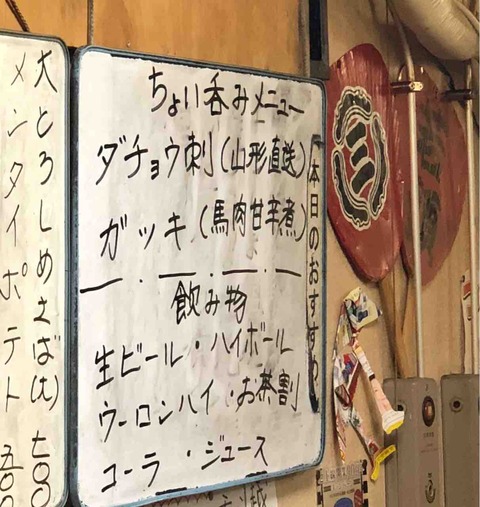 ちょい呑みメニュー
ダチョウ刺(山形直送)
ガッキ(馬肉甘辛煮)
飲み物
生ビール・ハイボール
ウーロンハイ・お茶割
コーラ・ジュース
本日のおすすめ
大とろしめさば(大) 七〇〇
メンタイポテト 五〇〇